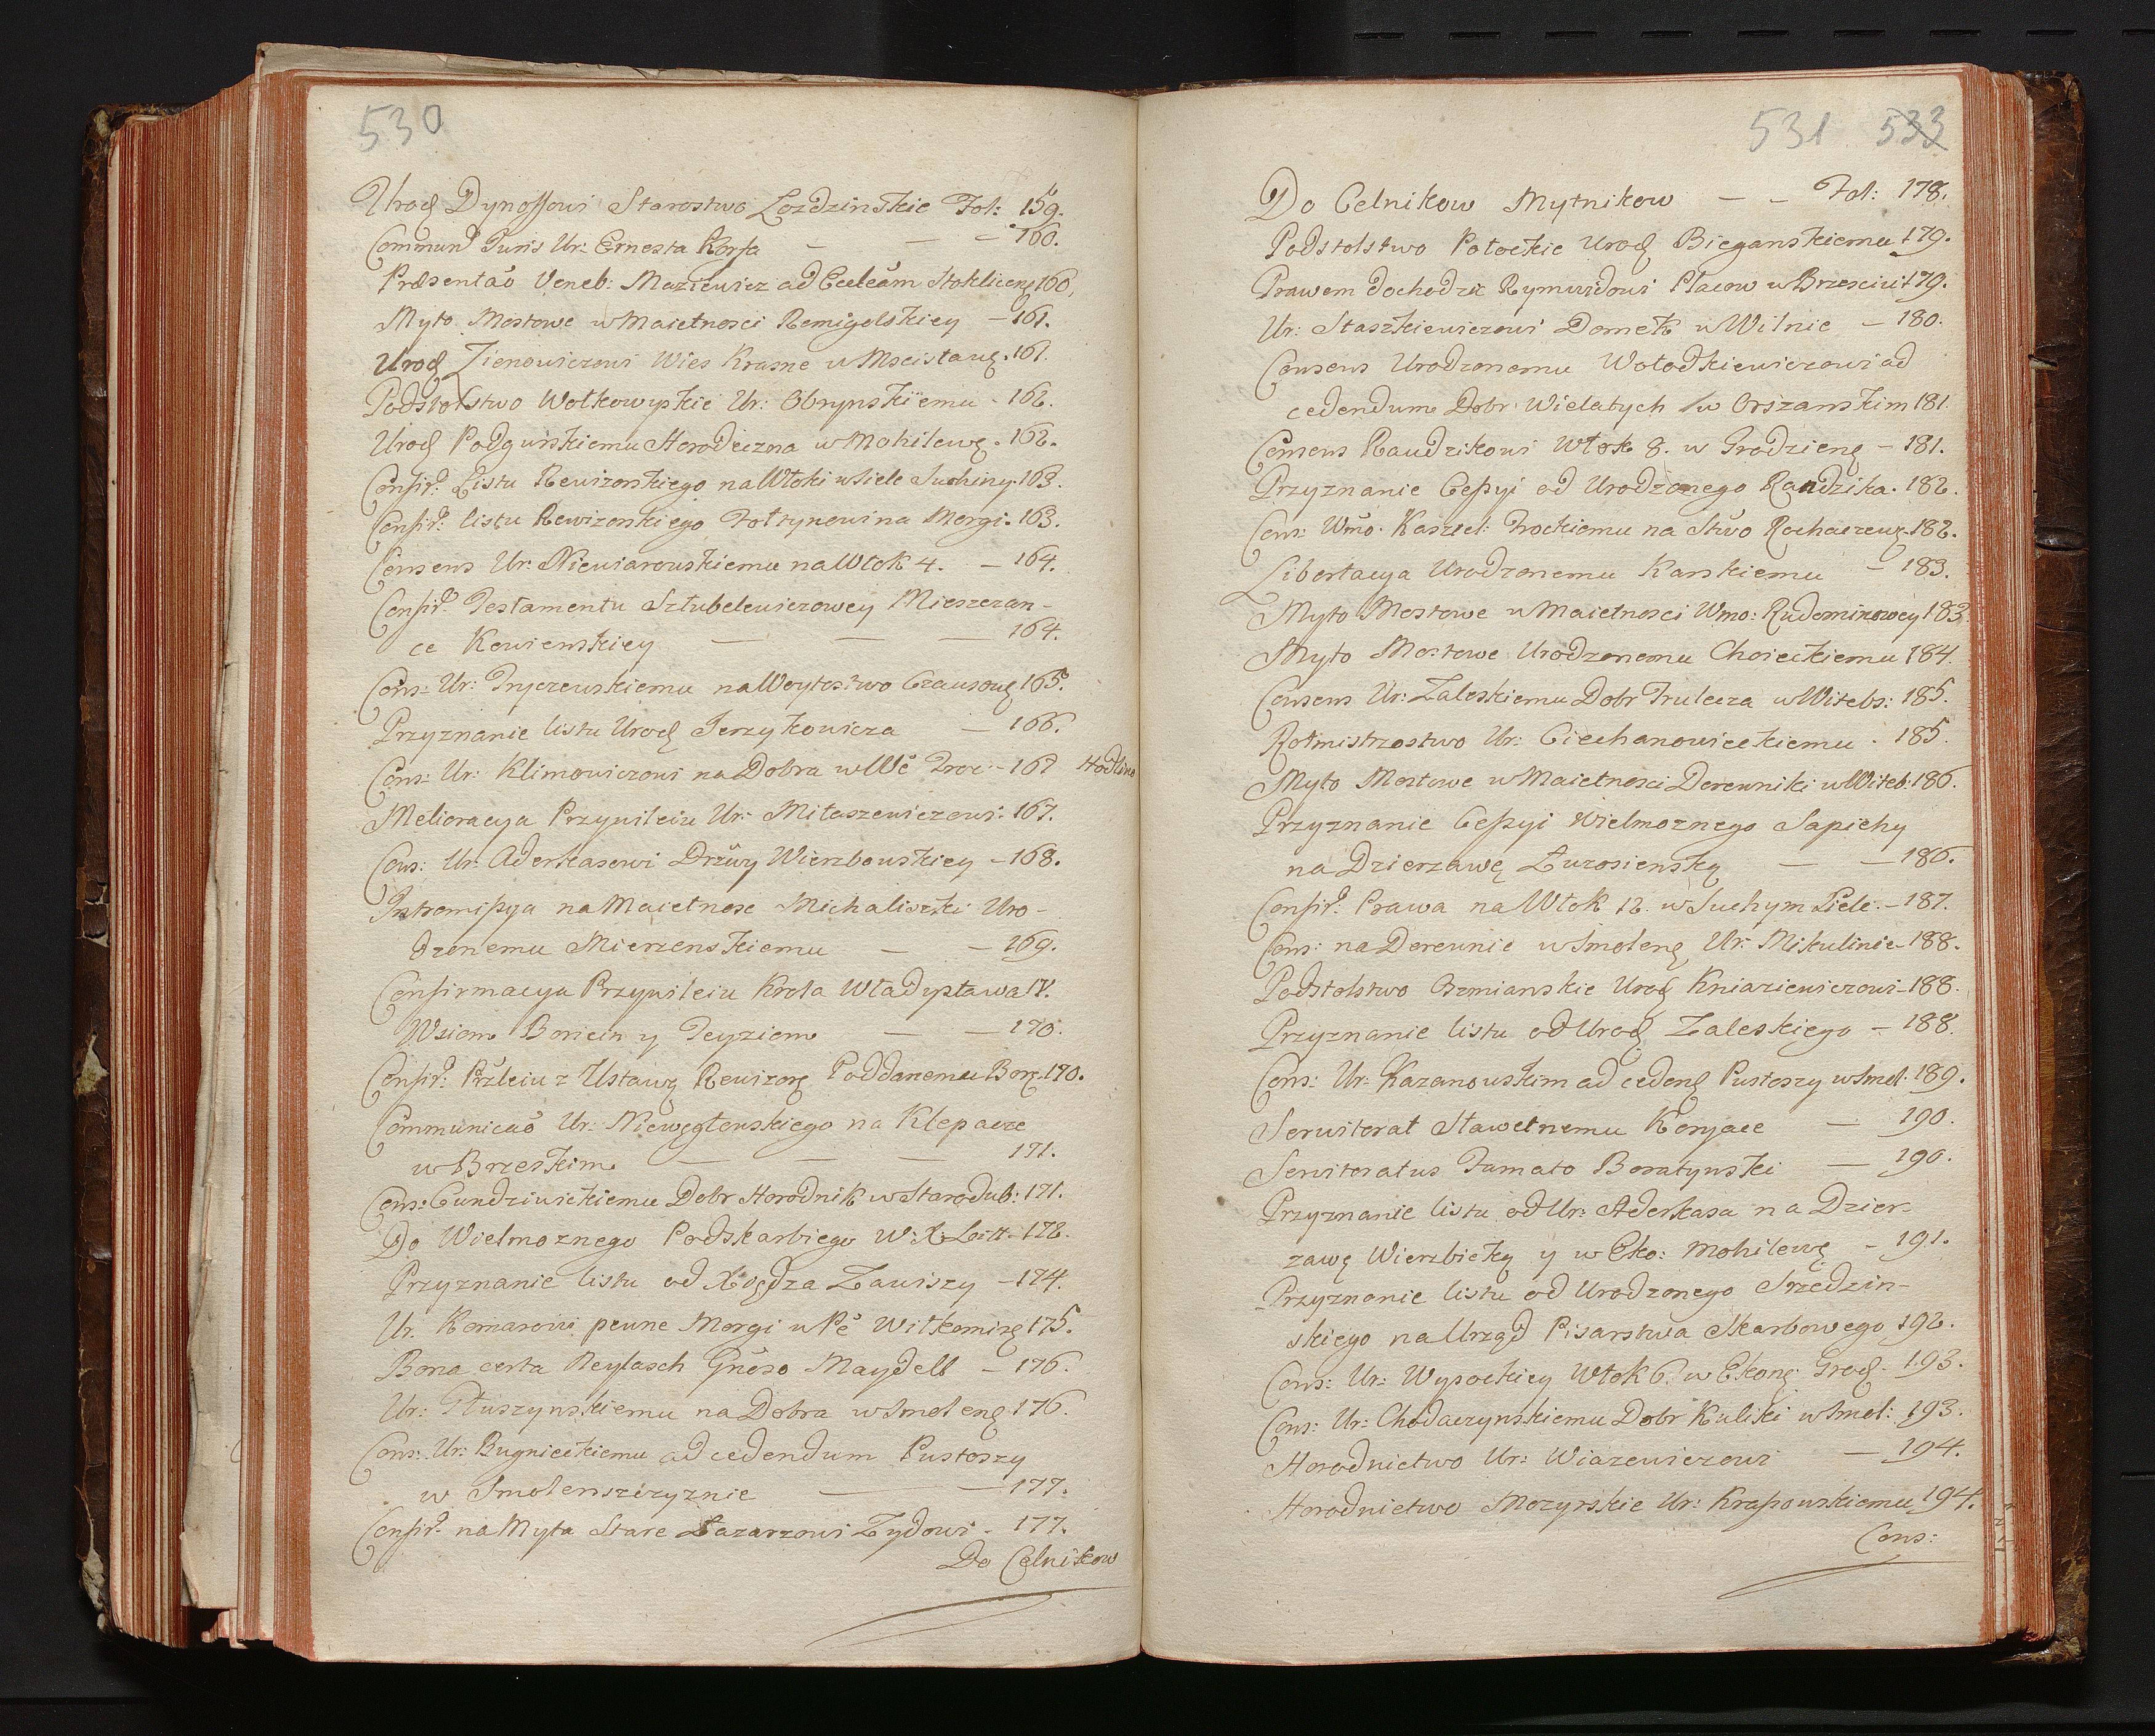 530
Urod Dynossowi Starostwo Łozdzinskie Fol: 159.
Commun Juris Ur: Ernesta Korfa — — — 160.
Præsentaõ Veneb: Maziewicz ad Eccleām Stokliceng 160.
Myto Mostowe w Maietnosci Remigolskiey — 161.
Urod Zienowiczowi Wies Krasne w Mscisławg. 161.
Podstolstwo Wołkowyskie Ur: Obrynskiemu - 162.
Urod Podgurskiemu Horodeczna w Mohilewg. 162.
Confir: Listu Rewizorskiego na Włoki w Siele Suchiny. 163.
Confir: listu Rewizorskiego Fołtynowi na Morgi. 163.
Consens Ur: Niewiarowskiemu na Włok 4. — 164.
Confir: Testamentu Sztubelewiczowey Mieszczan-
ce Kowienskiey — — — 164.
Cons: Ur: Tryczewskiemu na Woytostwo Czausowg 165.
Przyznanie listu Urod Jerzykowicza — 166.
Cons: Ur: Klimowiczowi na Dobra w Wẽ Troc: - 167 Hodlina
Melioracya Przywileiu Ur: Miłaszewiczowi: 167.
Cons: Ur: Aderkasowi Drzwy Wierzbowskiey — 168.
Intromissya na Maietnosc Michaliszki Uro-
dzonemu Mierzenskiemu — — 169.
Confirmacya Przywileiu Krola Władysława IV.
Wsiom Boricin y Teyziom — — 170.
Confir: Przleiu z Ustawg Rewizorg Poddanemu Borg. 170.
Communicaõ Ur: Niewęgłowskiego na Klepacze
w Brzeskim — — — 171.
Cons: Gundziwickiemu Dobr Horodnik w Starodub: 171.
Do Wielmoznego Podskarbiego W: X: Litt — 172.
Przyznanie listu od Xiędza Zawiszy — 174.
Ur. Komarowi pewne Morgi w Pẽ Wiłkomirg 175.
Bona certa Neylasch Gñoso Maydell — 176.
Ur: Pluszynskiemu na Dobra w Smoleng 176.
Cons: Ur: Bugnieckiemu ad cedendum Pustoszy
w Smolenszczyznie — — 177.
Confir: na Myta Stare Łazarzowi Zydowi - 177.
Do Celnikow
531 533
Do Celnikow Mytnikow — — Fol: 178.
Podstolstwo Połockie Urod Bieganskiemu 179.
Prawem dochodzic Rymwidowi Placow w Brzesciu 179.
Ur: Staszkiewiczowi Domek w Wilnie — 180.
Consens Urodzonemu Wołodkiewiczowi ad
cedendum Dobr Wielatych w Orszanskim 181.
Consens Raudzikowi Włok 8. w Grodzieng — 181.
Przyznanie Cessyi od Urodzonego Raudzika. 182.
Cons: Wmo. Kasztel: Trockiemu na Stwo Rohaczewg. 182.
Libertacya Urodzonemu Karskiemu — 183.
Myto Mostowe w Maietnosci Wmo: Rudominowey 183.
Myto Mostowe Urodzonemu Choieckiemu 184.
Consens Ur: Zaleskiemu Dobr Trulecza w Witebs: 185.
Rotmistrzostwo Ur: Ciechanowieckiemu - 185.
Myto Mostowe w Maietnosci Derewniki w Witeb: 186.
Przyznanie Cessyi Wielmoznego Sapiehy
na Dzierzawę Zurosienską — — 186.
Confir: Prawa na Włok 12. w Suchym Siele. — 187.
Cons: na Derewnie w Smoleng Ur: Mikulinie — 188.
Podstolstwo Oszmianskie Urod Kniaziewiczowi — 188.
Przyznanie listu od Urod Zaleskiego — 188.
Cons: Ur: Kazanowskim ad cedeng Pustoszy w Smol. 189.
Serwitorat Sławetnemu Koryace — 190.
Servitoratus Famato Boratynski — 190.
Przyznanie listu od Ur: Aderkasa na Dzier-
zawę Wierzbicką y w Eko: Mohilewg — 191.
Przyznanie listu od Urodzonego Srzedzin-
skiego na Urząd Pisarstwa Skarbowego 192.
Cons: Ur: Wysockiey Włok 6. w Ekong Grod. 193.
Cons: Ur: Chodaczynskiemu Dobr Kuliki w Smol: 193.
Horodnictwo Ur: Wiazewiczowi — 194.
Horodnictwo Mozyrskie Ur: Krasowskiemu 194.
Cons: